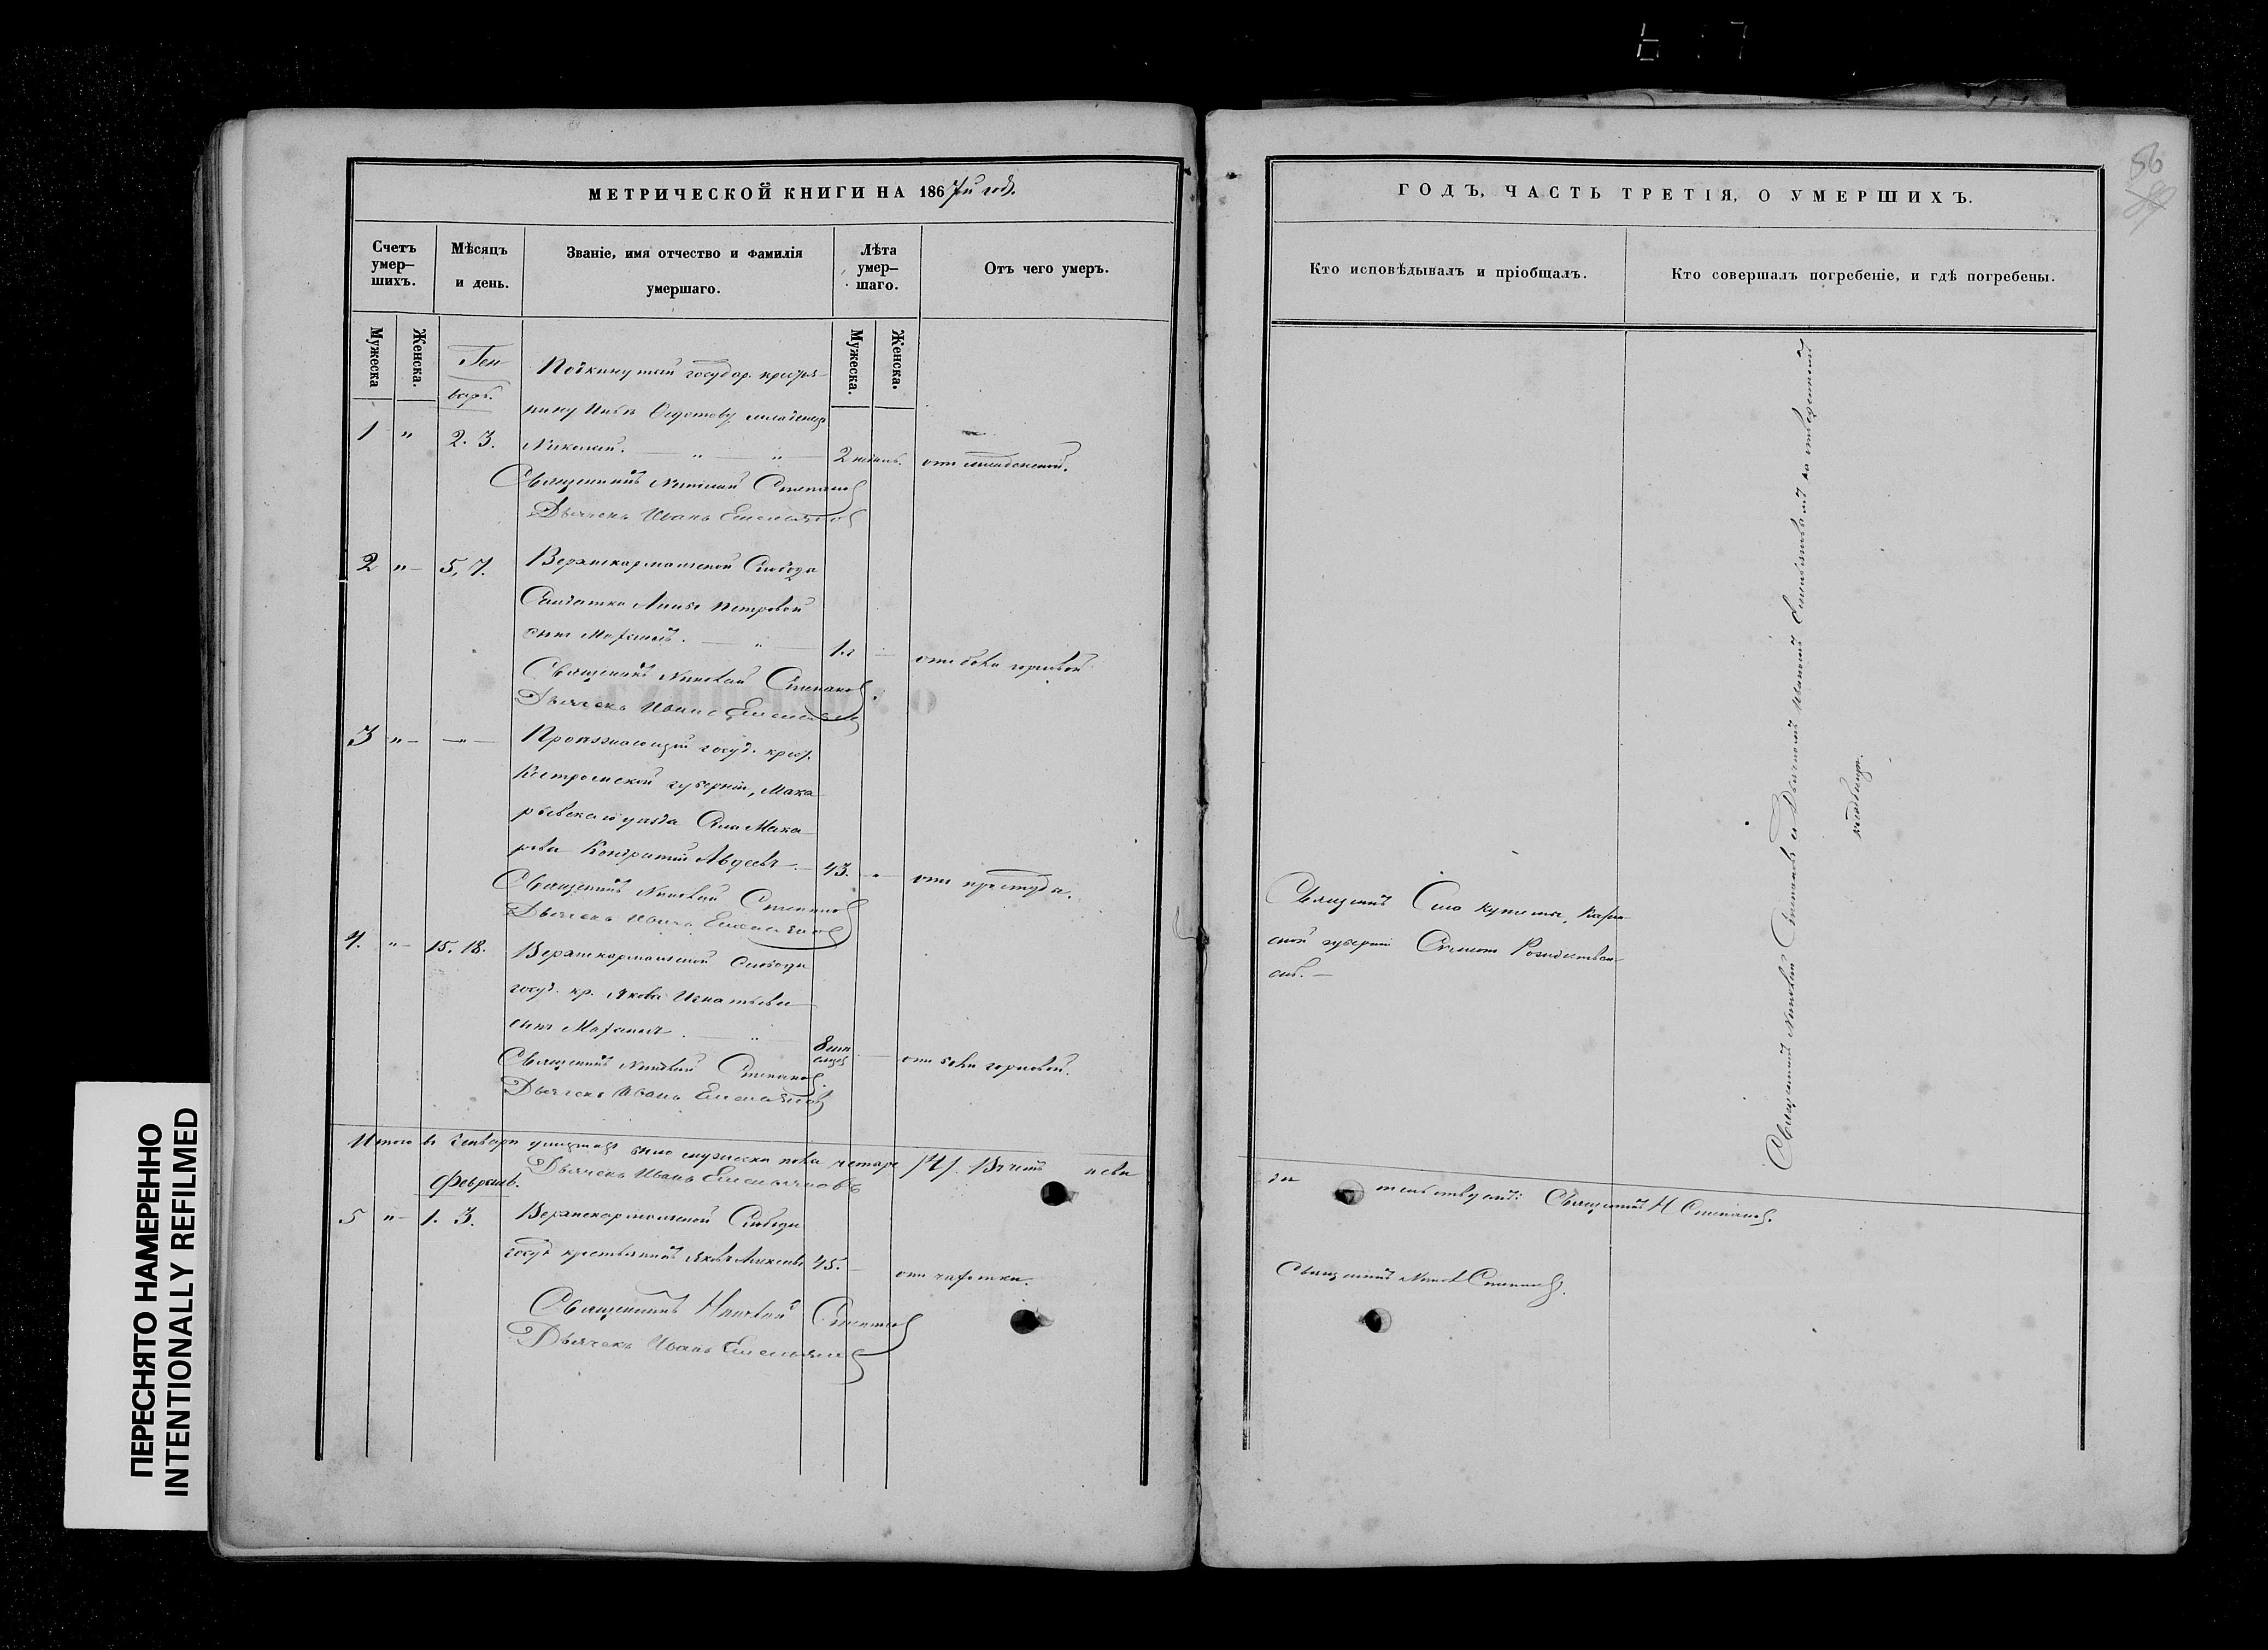 56
МЕТРИЧЕСКОЙ КНИГИ НА 1867й год.
Счетъ умер—шихъ.
Мѣсяцъ и день.
Званіе, имя отчество и фамилія умершаго.
Лѣта умер—шаго.
Отъ чего умеръ.
Мужеска
Женска.
Мужеска.
Женска.
Ген
варь.
Подкинутый государ. крестья-
нину младенецъ
1 " 2. 3. Николай. — " — " — 2 недѣль. отъ младенской.
Священникъ Николай Степановъ
Дьячекъ Иванъ Емельяновъ
2 " — 5, 7. Верхнекармальской Слободы
Солдатки Анны Петровой
сынъ — " — 1. отъ боли горловой
Священникъ Николай Степановъ.
Дьячекъ Иванъ Емельяновъ
3 " — — " — Проѣзжающій госуд. крест.
Костромской губерніи, Мака
рьевскаго уѣзда Села Мака
рьева Кондратій Авдеевъ. — 43. — " отъ простуды.
Священникъ Николай Степановъ
Дьячекъ Иванъ Емельяновъ
4. " — 15. 18. Верхнекармальской Слободы
госуд. кр. Якова Игнатьева
сынъ — " — 8 мѣ
сяцевъ — отъ боли горловой.
Священникъ Николай Степановъ.
Дьячекъ Иванъ Емельяновъ
Итого въ Генварѣ умершихъ было мужеска пола четыре /4/.
Дьячекъ Иванъ Емельяновъ
Февраль.
5 " — 1. 3. Верхнекармальской Слободы
госуд крестьянинъ Яковъ 45. — отъ чахотки.
Священникъ Николай Степановъ
Дьячекъ Иванъ Емельяновъ
ГОДЪ, ЧАСТЬ ТРЕТІЯ, О УМЕРШИХЪ.
Кто исповѣдывалъ и пріобщалъ.
Кто совершалъ погребеніе, и гдѣ погребены.
Священникъ Села
ской губерніи Рождествен-
скій. —
Священникъ Николай Степановъ съ Дьячкомъ Иваномъ Емельяновымъ на отведенномъ
кладбищѣ.
Священникъ Н Степановъ.
Священникъ Никол Степановъ.
ПЕРЕСНЯТО НАМЕРЕННО
INTENTIONALLY REFILMED